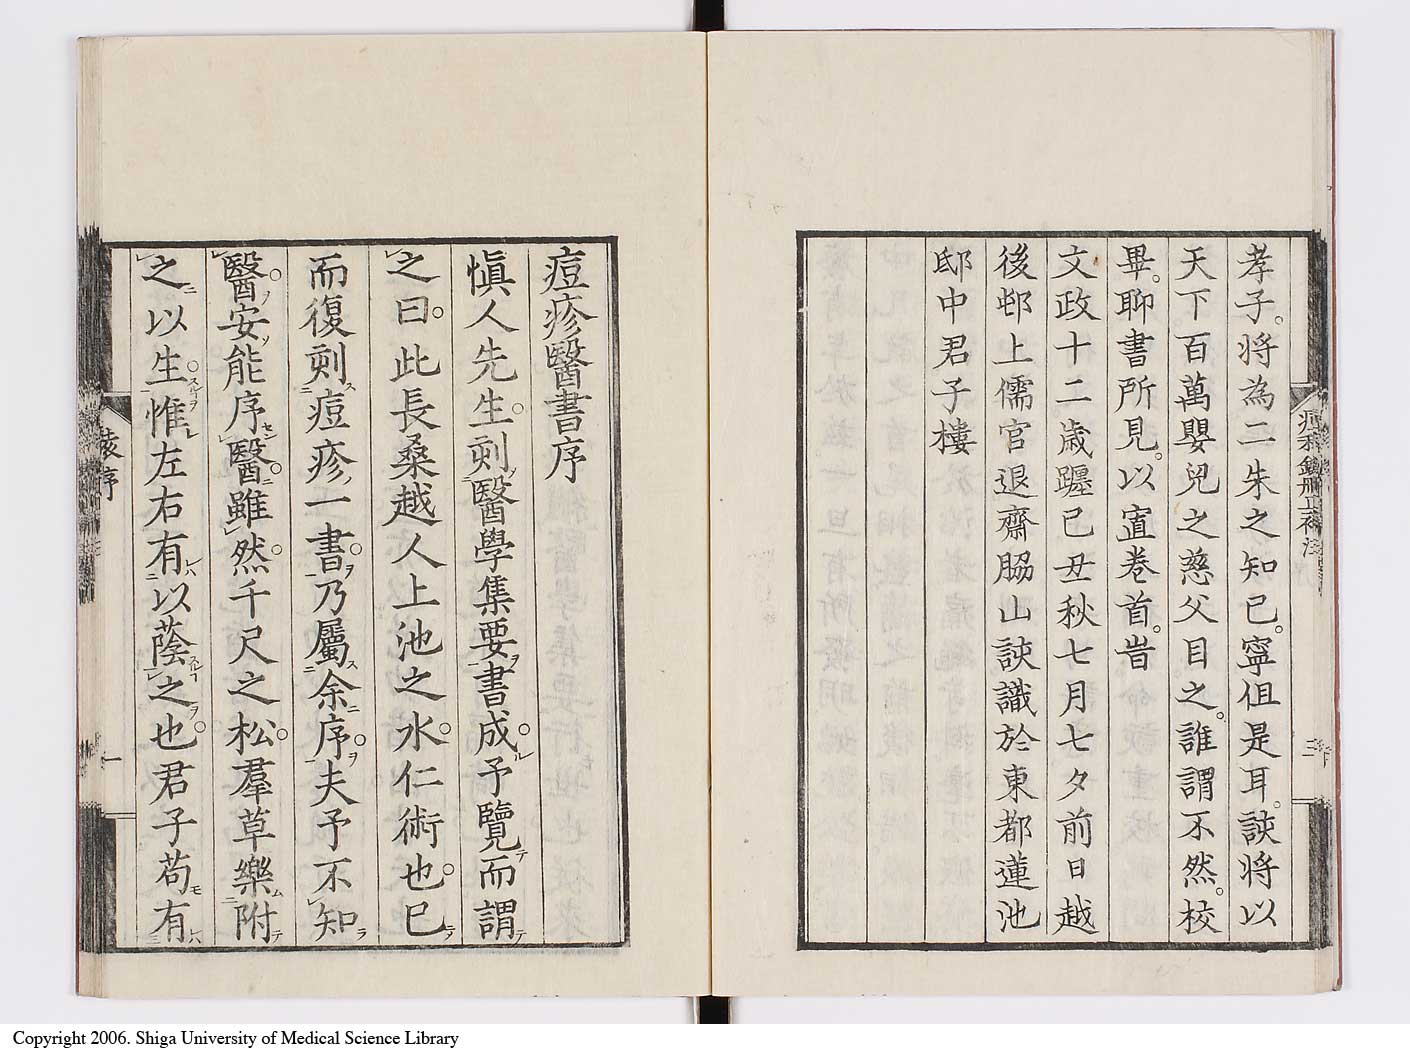 孝子。将為二朱之知己。寧伹是耳。䛳将以
天下百萬嬰兒之慈父目之。誰謂不然。校
畢。聊書所見。以寘卷首。峕
文政十二歳躔己丑秋七月七夕前日越
後邨上儒官退齋脇山䛳識於東都蓮池
邸中君子樓
痘疹醫書序
愼人先生刻醫學集要書成予覽而謂
之曰此長桑越人上池之水仁術也已
而復刻痘疹一書乃屬余序夫予不知
醫安能序醫雖然千尺之松羣草樂附
之以生惟左右有以蔭之也君子苟有
序
一
Copyright 2006. Shiga University of Medical Science Library